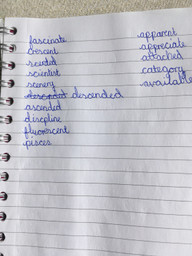 fascinate
crescent
scientist
scenery
descended
ascended
discipline
fluorescent
pisces
apparent
appreciate
attached
category
available